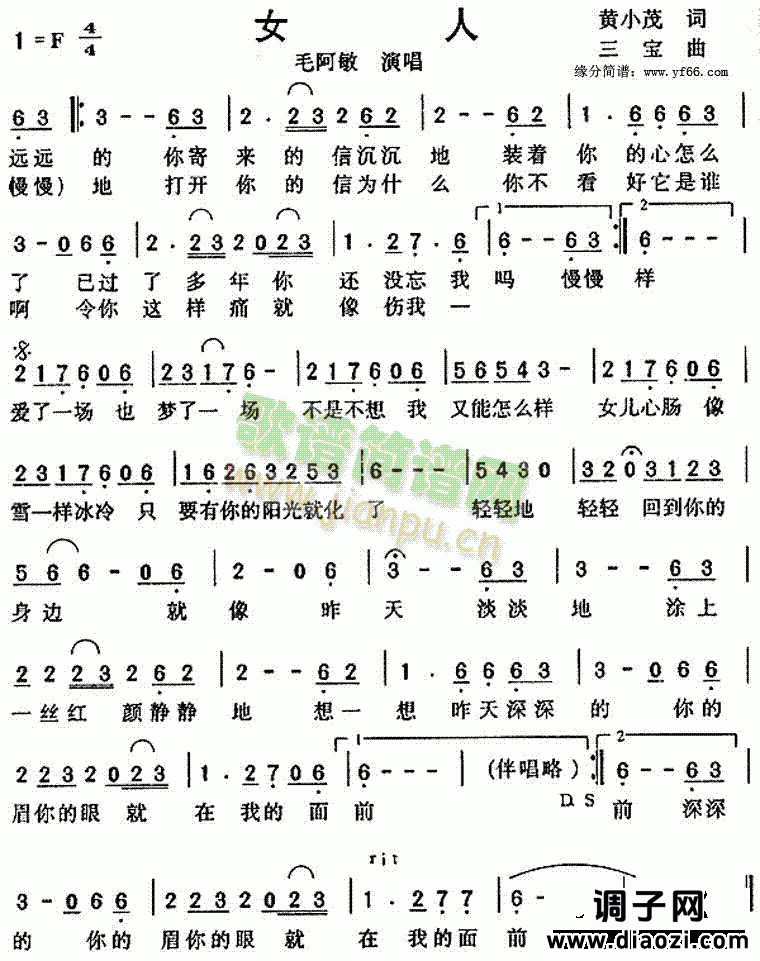 女人
黄小茂 词
1=F 4/4
三宝 曲
毛阿敏 演唱
缘分简谱：www.yf66.com
6 3 ‖: 3 - - 6 3 | 2 . 2 3 2 6 2 | 2 - - 6 2 | 1 . 6 6 6 3 |
远远 的 你寄 来的信沉沉地 装着你的心怎么
慢慢）地 打开你的信为什么 你不看好它是谁
3 - 0 6 6 | 2 . 2 3 2 0 2 3 | 1 . 2 7 . 6 | 1 6 - - 6 3 :‖ 2 6 - - |
了 已过了多年你 还没忘我吗 慢慢样
啊 令你这样痛就像伤我一
2 1 7 6 0 6 | 2 3 1 7 6 - | 2 1 7 6 0 6 | 5 6 5 4 3 - | 2 1 7 6 0 6 |
爱了一场也梦了一场 不是不想我又能怎么样 女儿心肠像
歌谱简谱网
www.jianpu.cn
2 3 1 7 6 0 6 | 1 6 2 6 3 2 5 3 | 6 - - - | 5 4 3 0 | 3 2 0 3 1 2 3 |
雪一样冰冷只 要有你的阳光就化了 轻轻地 轻轻 回到你的
5 6 6 - 0 6 | 2 - 0 6 | 3 - - 6 3 | 3 - - 6 3 |
身边 就像 昨天 淡淡地 涂上
2 2 2 3 2 6 2 | 2 - - 6 2 | 1 . 6 6 6 3 | 3 - 0 6 6 |
一丝红 颜静静地 想一想昨天深深的 你的
2 2 3 2 0 2 3 | 1 . 2 7 0 6 | 1 6 - - - | （伴唱略）:‖ 2 6 - - 6 3 |
眉你的眼就 在我的面前 D.S 前 深深
rit
3 - 0 6 6 | 2 2 3 2 0 2 3 | 1 . 2 7 7 | 6 -
的 你的 眉你的眼就 在我的面前
调子网
www.diaozi.com